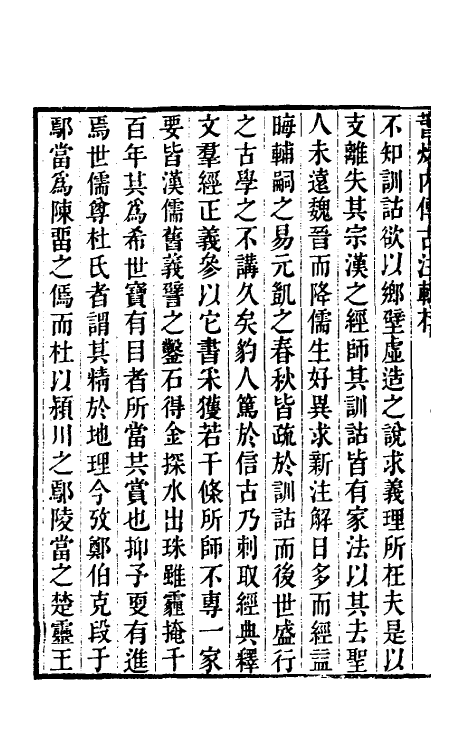 内傳古注輯存
不知訓詁欲以鄉壁虛造之說求義理所在夫是以
支離失其宗漢之經師其訓詁皆有家法以其去聖
人未遠魏晉而降儒生好異求新注解日多而經益
晦輔嗣之易元凱之春秋皆疏於訓詁而後世盛行
之古學之不講久矣豹人篤於信古乃刺取經典釋
文羣經正義參以它書采獲若干條所師不專一家
要皆漢儒舊義譬之鑿石得金探水出珠雖霾掩千
百年其爲希世寶有目者所當共賞也抑予更有進
焉世儒尊杜氏者謂其精於地理今攷鄭伯克段于
鄢當爲陳畱之傿而杜以潁川之鄢陵當之楚靈王